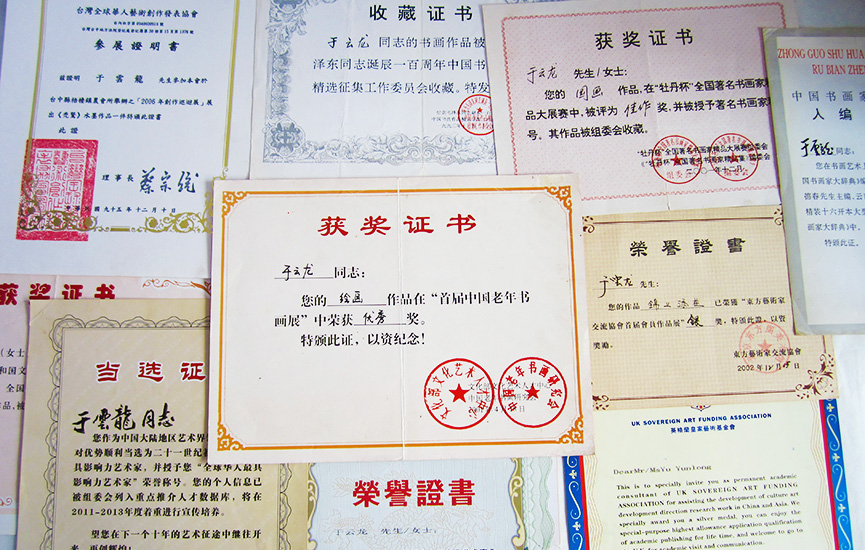 台灣全球華人藝術創作發表協會
參展證明書
茲證明 于雲龍 先生參加本會於
台中縣梧棲鎮農會所舉辦之「2006年創作巡迴展」展
出《荒鷲》水墨作品一件特頒此證書
此證
理事長 蔡宗
中華民國九十五年十二月十日
收藏证书
于云龙 同志的书画作品被
泽东同志诞辰一百周年中国书
精选征集工作委员会收藏。特发
获奖证书
于云龙 先生/女士:
您的 国画 作品,在“牡丹杯”全国著名书画家
品大展赛中,被评为 佳作 奖,并被授予著名书画家
号。其作品被组委会收藏。
“牡丹杯”全国著名书画家精品大展赛组委会
二〇〇一年十二月
ZHONG GUO SHU HUA
RU BIAN ZHE
中国书画家
入编
同志:
您在书画艺术
国书画家大辞典
德春先生主编,云
精装十六开本大
画家大辞典》中。
特颁此证。
获奖证书
于云龙 同志:
您的 绘画 作品在“首届中国老年书
画展”中荣获 优秀 奖。
特颁此证,以资纪念!
文化部文化艺术人才中心
中国老年书画研究会
榮譽證書
于雲龙 先生:
您的作品 錦上添花 已榮獲“東方藝術家
交流協會首届會員作品展” 銀 奖,特頒此證,以資
奖勵。
東方藝術家交流協會
2002年12月
获奖证书
(女士
和国文
全国
作品,被
当选证
于雲龍同志
您作为中国大陆地区艺术界
对优势顺利当选为二十一世纪
具影响力艺术家,并授予您“全球华人最具
影响力艺术家”荣誉称号。您的个人信息已
被组委会列入重点推介人才数据库,将在
2011-2013年度着重进行宣传培养。
望您在下一个十年的艺术征途中继往开
来,再创辉煌!
榮譽證書
于云龙 先生/女士:
UK SOVEREIGN ART FUNDING ASSOCIATION
英格蘭皇家藝術基金會
Dear Mr/Ms Yu Yunlong
This is to specially invite you as permanent academic
consultant of UK SOVEREIGN ART FUNDING
ASSOCIATION for assisting the development of culture art
development direction research work in China and Asia. We
specially award you a silver medal, you can enjoy the
special-purpose highest allowance application qualification
of academic publishing for life time, and welcome to go to
UK for academic visit and communication.